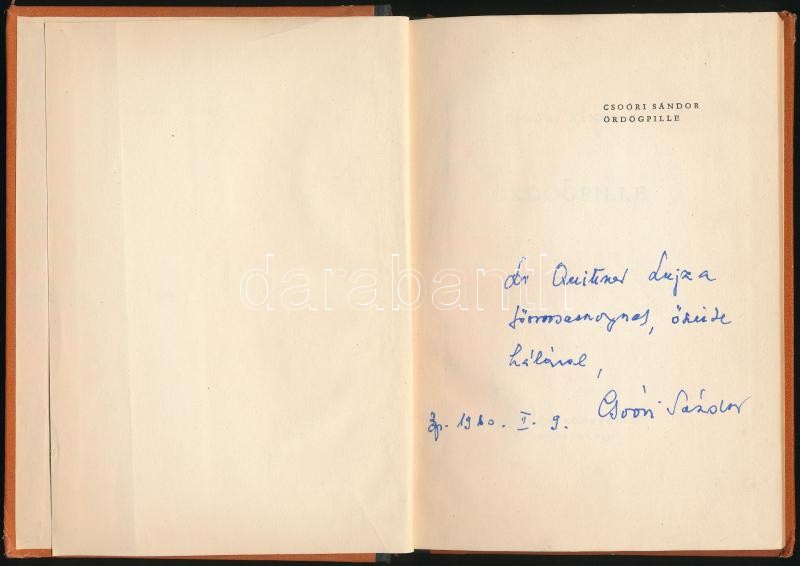 CSOÓRI SÁNDOR
ÖRDÖGPILLE
ÖRDÖGPILLE
Dr Quittner Lujza
főorvosasszonynak, őszinte
hálával,
Csoóri Sándor
Bp. 1960. II. 9.
darabanth